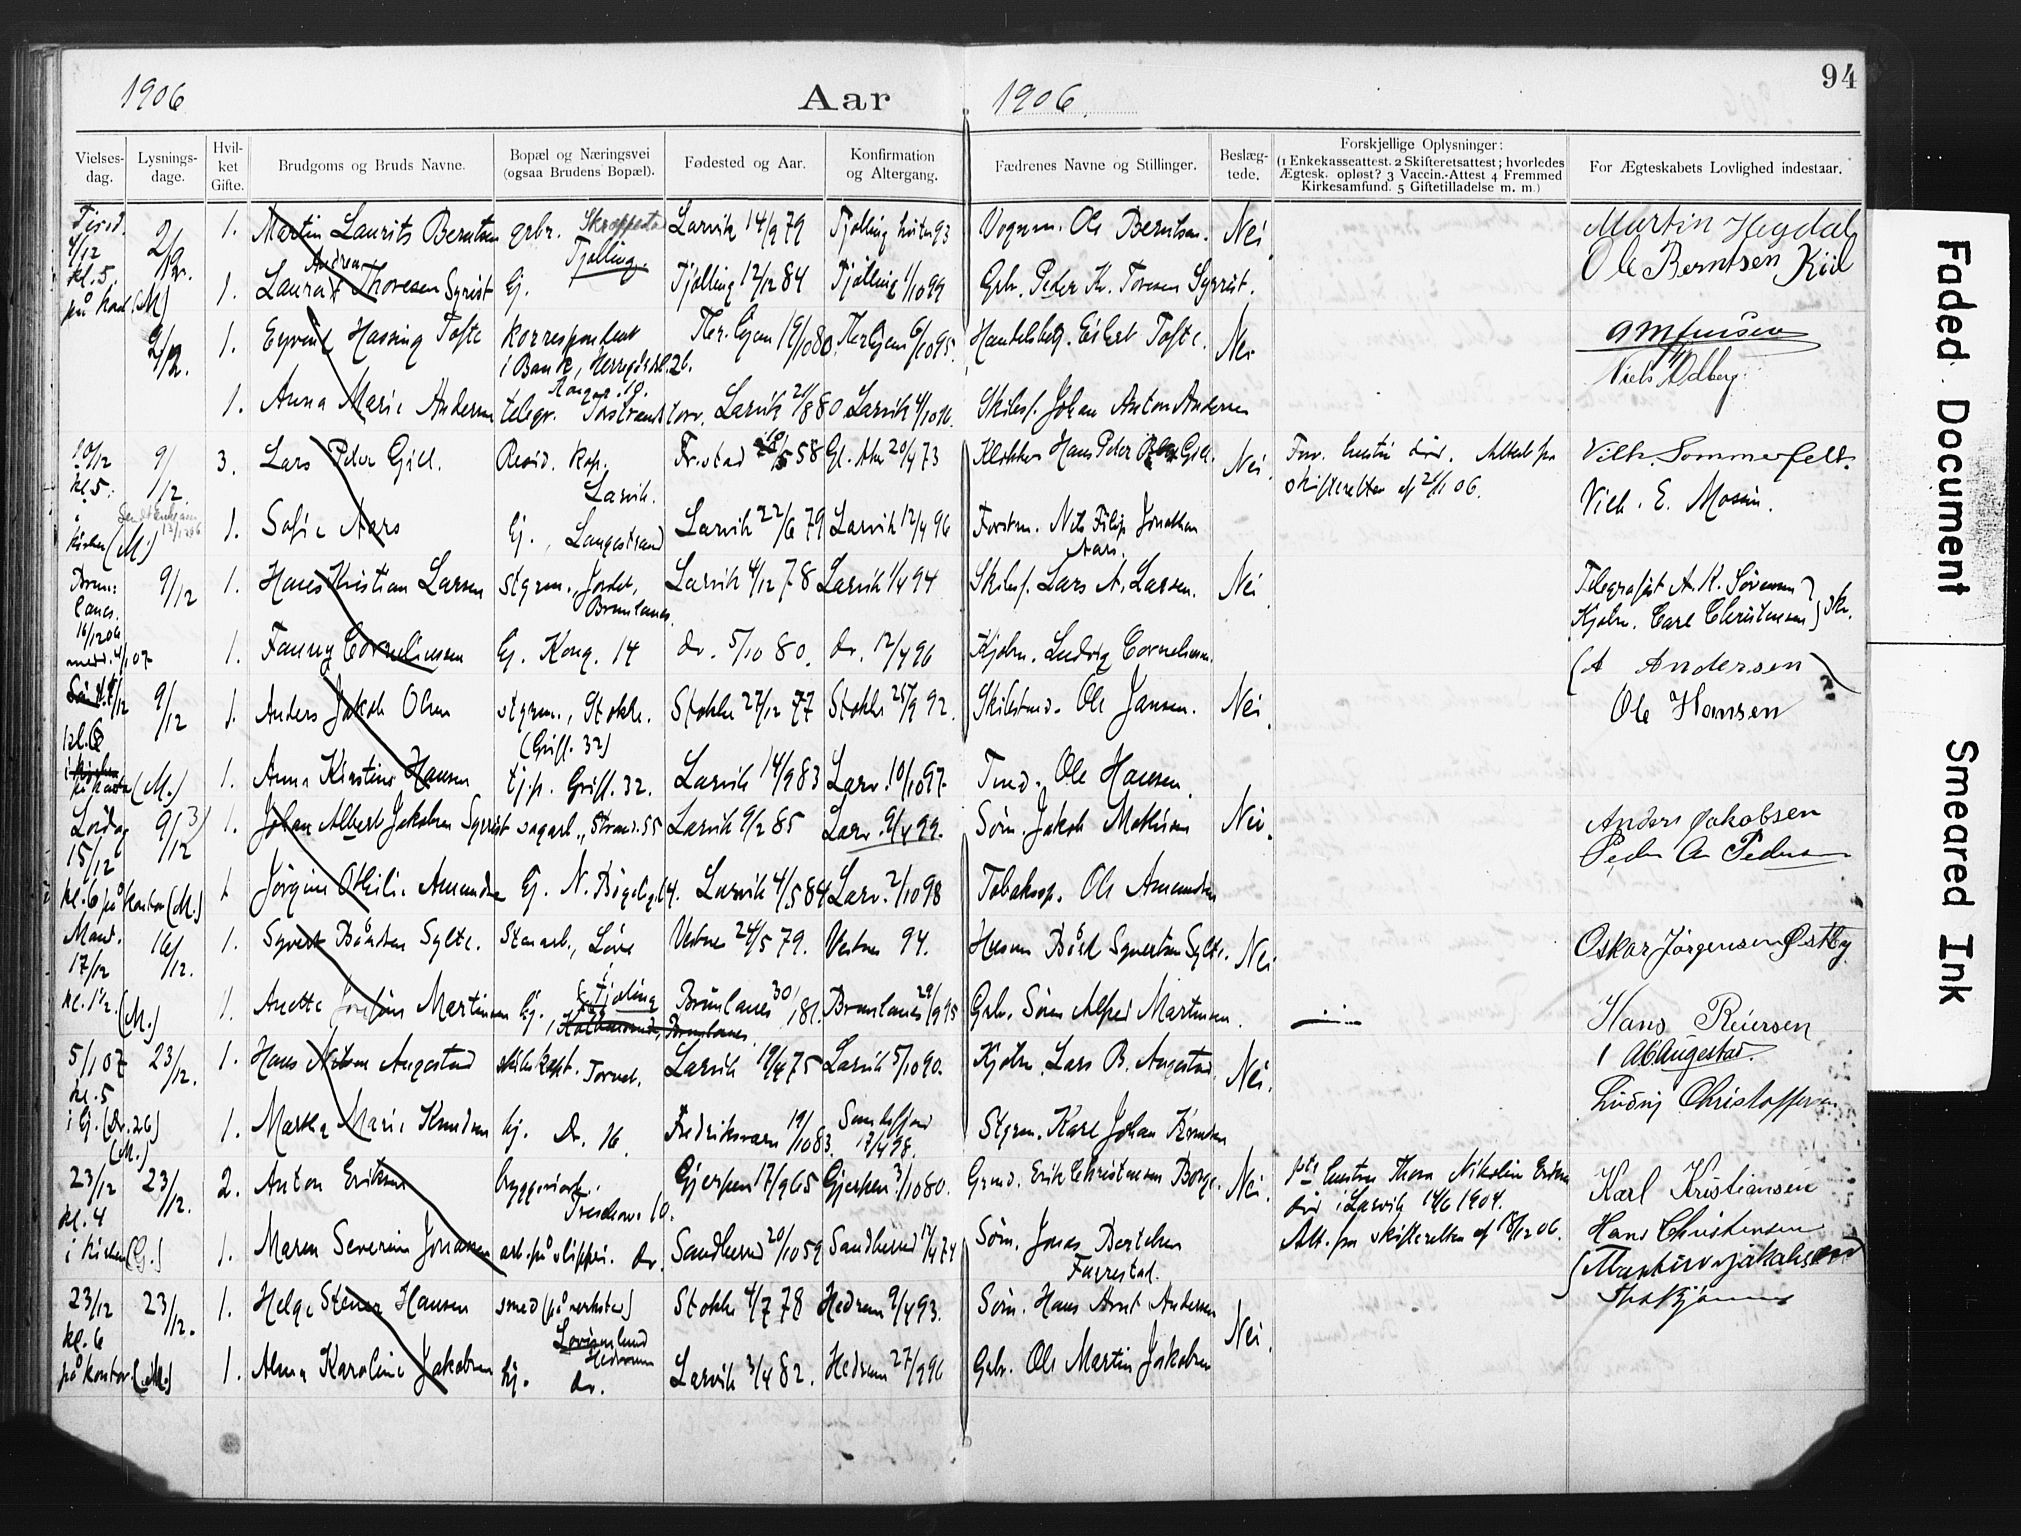 94
1906 Aar 1906
Vielses-dag. Lysnings-dage. Hvil-ket Gifte. Brudgoms og Bruds Navne. Bopæl og Næringsvei (ogsaa Brudens Bopæl). Fødested og Aar. Konfirmation og Altergang. Fædrenes Navne og Stillinger. Beslæg-tede. Forskjellige Oplysninger: (1 Enkekasseattest. 2 Skifteretsattest; hvorledes Ægtesk. opløst? 3 Vaccin.-Attest 4 Fremmed Kirkesamfund. 5 Giftetilladelse m. m.) For Ægteskabets Lovlighed indestaar.
4/12 kl. 5 2/12 1. Martin Laurits Berntsen gbr. Tjølling Larvik 14/9 79 Tjølling 93 Vognm. Ole Berntsen. Nei Martin Hegdal
Ole Berntsen Kiil
på Kont. (M) 1. Laura Andrea Thoresen Syrist Hj. Tjølling 12/12 84 Tjølling 1/10 99 Gbr. Peder Kr. Toresen Syrist.
9/12. 1. Eyvind Hassing Tofte korrespondent i Bank, Herregårdsbk. 26. 19/10 80. 6/10 95. Handelsbetj. Eilert Tofte. Nei
Niels Ødberg
1. Anna Marie Andersen telegr. Larvik 21/8 80 Larvik Skibsf. Johan Anton Andersen
10/12 kl. 5. 9/12. 3. Lars Peter Gill. Resid. kap. Larvik. Fr.stad 58 Gl. Aker 20/4 73 Klokker Hans Peter Gill. Nei. Før. hustru død. Attest fra skifteretten af 2/1 06. Vilh. Sommerfelt.
Vilh. E. Mosin.
i kirken (M.) 1. Sofie Aars Hj., Langestrand Larvik 22/6 79 Larvik 12/4 96 Forstm. Nils Filip Jonathan Aars.
Brunlanes. 16/12 06 9/12 1. Hans Kristian Larsen styrm., Jordet, Brunlanes. Larvik 4/12 78 Larvik 1/4 94 Skibsf. Lars A. Larsen. Nei Telegrafist A. K. Sørensen
Kjøbm. Carl Christensen
medd. 4/1 07 1. Fanny Corneliussen Hj. Kong. 14 do. 5/10 80. do. 12/4 96 Kjøbm. Ludvig Corneliussen.
(A Andersen)
9/12 1. Anders Jakob Olsen styrm., Stokke. (Griff. 32) Stokke 27/12 77 Stokke 25/9 92. Skibstmd. Ole Jansen. Nei Ole Hansen
kl. 6
på kontor (M.) 1. Anna Kirstine Hansen tj.p. Griff. 32. Larvik 14/9 83 Larv. 10/10 97. Tmd. Ole Hansen.
Lørdag 15/12 9/12 1. Johan Albert Jakobsen Syrist sagarb., Strand. 55 Larvik 9/2 85 Larv. 9/4 99. Søm. Jakob Mathisen Nei. Anders Jakobsen
Peder A Pedersen
kl. 6 på kontor (M.) 1. Jørgine Othilie Amundsen Hj. N. Bøgelgt. 4. Larvik 4/5 84 Larv. 2/10 98 Tobaksp. Ole Amundsen
Mand. 17/12 16/12. 1. Syvert Bårdsen Sylte. Stenarb., Vestnes 24/5 79. Vestnes 94. Husm. Bård Syvertsen Sylte. Nei Oskar Jørgensen Østby
kl. 1½. (M.) 1. Anette Josefine Martinsen hj. Tjølling Brunlanes 30/1 81. Brunlanes 29/9 95 Gbr. Søren Alfred Martinsen. Hans Reiersen
5/1 07 kl. 5 23/12. 1. Hans Nilsen Augestad skibskapt. Torvet. Larvik 19/4 75 Larvik 5/10 90. Kjøbm. Lars B. Augestad. Nei. Ab Augestad.
Ludvig Christoffersen
i Hj. (Dr. 26) (M.) 1. Martha Marie Knudsen hj. Dr. 16 Fredriksværn 19/10 83. Sandefjord 17/4 98. Styrm. Karl Johan Knudsen
23/12 kl. 4 23/12. 2. Anton Eriksen bryggeriarb. Treschows 10. Gjerpen 17/9 65 Gjerpen 3/10 80. Grmd. Erik Christensen Borge. Nei. hustru Thora Nikoline Eriksen død i Larvik 14/6 1904.
Att. fra skifteretten af 18/12 06. Karl Kristiansen
Hans Christensen
i Kirken (G.) 1. Maren Severine Jonassen arb. på slippri. do. Sandherred 20/10 59 Sandherred 17/4 74 Søm. Jonas Bertelsen Furrestad.
23/12 kl. 6 23/12. 1. Helge Steiner Hansen smed (på verksted) Hedrum Stokke 4/7 78 Hedrum 9/4 93. Søm. Hans Arnt Andersen Nei.
på kontor (M.) 1. Alma Karoline Jakobsen hj. do. Larvik 3/4 82. Hedrum 27/9 96 Gbr. Ole Martin Jakobsen
Faded Document
Smeared Ink